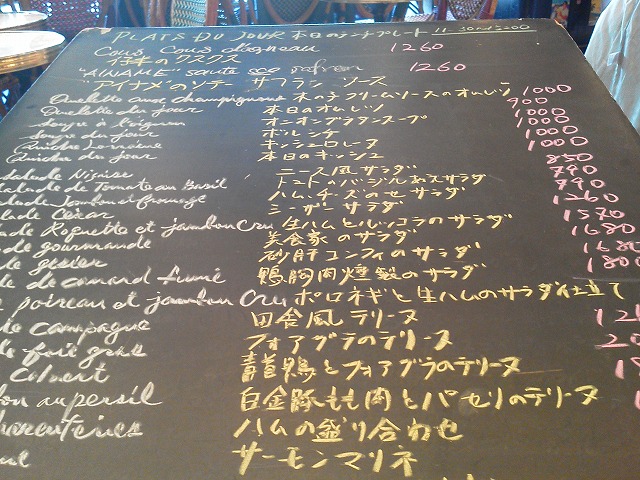 PLATS DU JOUR 本日のランチプレート !!
Cous Cous d'agneau 1260
仔羊のクスクス
"AINAME" sauté sce safran 1260
"アイナメ"のソテー サフランソース
Omelette aux champignons 木の子クリームソースのオムレツ 1000
Omelette du jour 本日のオムレツ 900
Soupe à l'oignon オニオングラタンスープ 1000
Soupe du jour 1000
Quiche Lorraine キッシュロレーヌ 1000
Quiche du jour 本日のキッシュ 1000
Salade Niçoise ニース風サラダ 850
Salade de Tomate au Basil トマトのバジル風味サラダ 790
Salade Jambon et fromage ハムチーズのせサラダ 790
lade César シーザーサラダ 1260
de Roquette et jambon Cru 生ハムとルッコラのサラダ 1570
de gourmande 美食家のサラダ 1680
de gésier 砂肝コンフィのサラダ 1680
de de canard fumé 鴨胸肉燻製のサラダ 1800
poireau et jambon Cru ポロネギと生ハムのサラダ仕立て
de campagne 田舎風テリーヌ 12
de foie gras フォアグラのテリーヌ 20
Colvert 青首鴨とフォアグラのテリーヌ
bon au persil 白金豚もも肉とパセリのテリーヌ
charcuteries ハムの盛り合わせ
サーモンマリネ